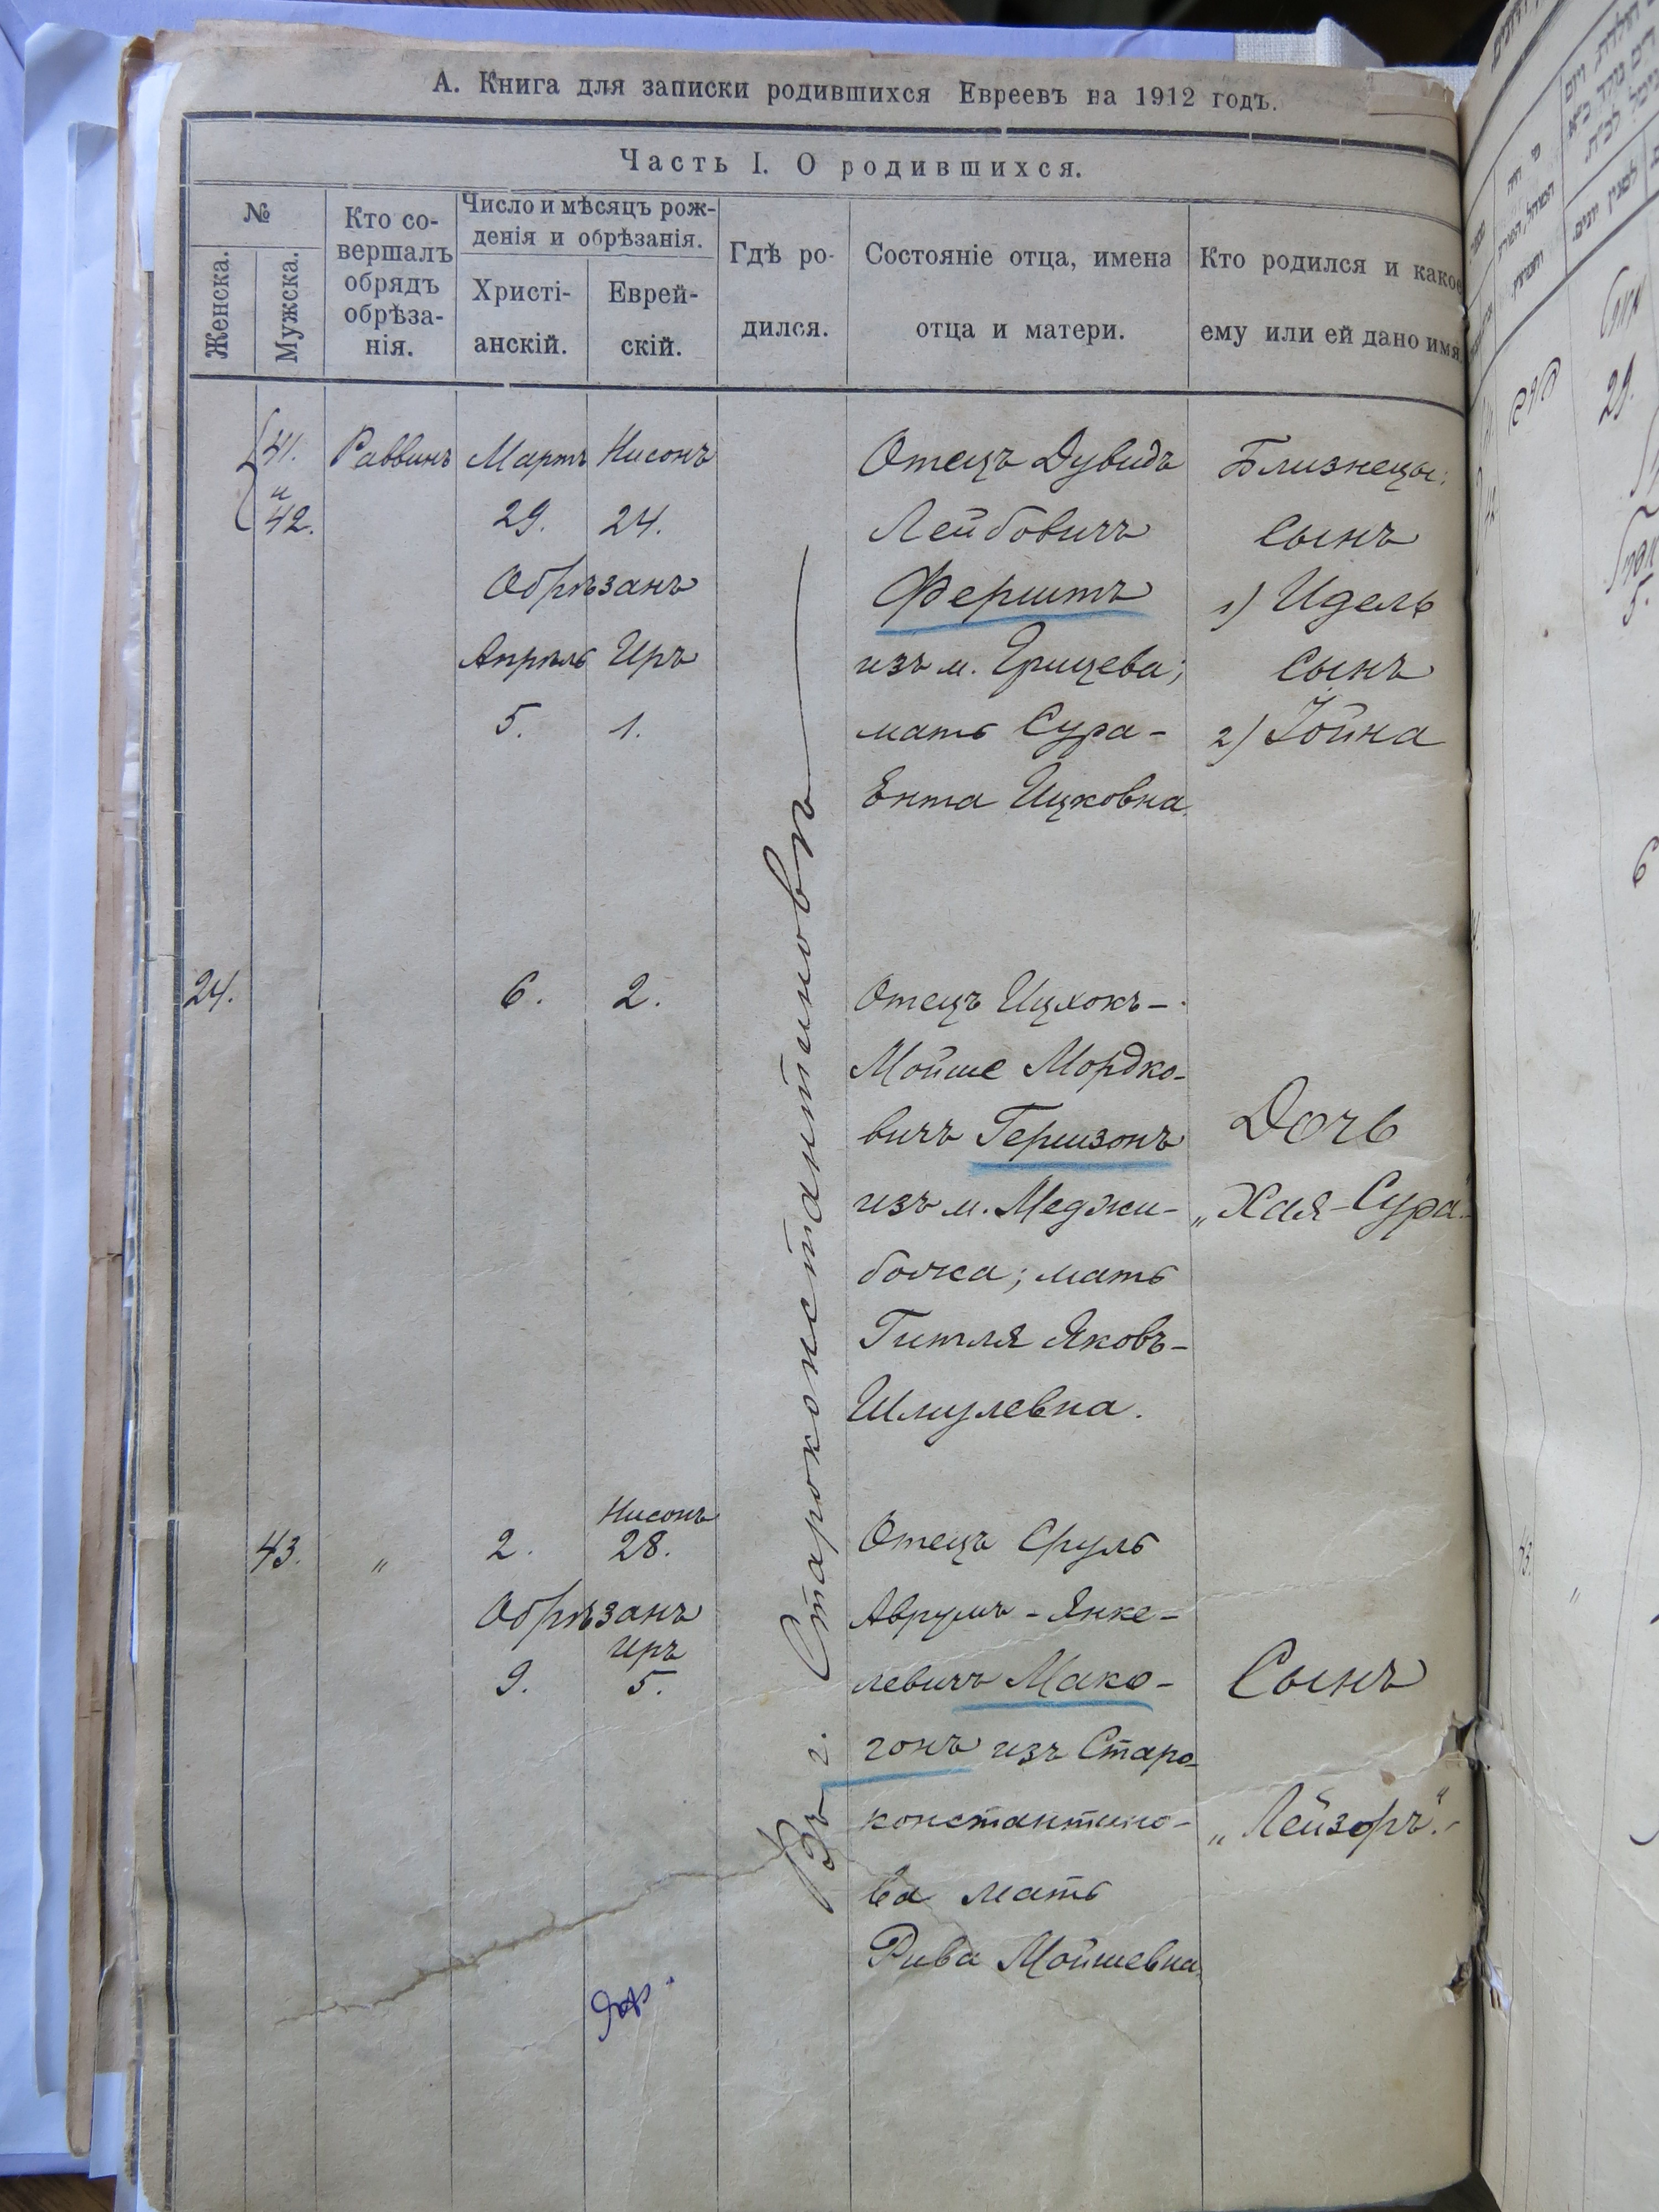 А. Книга для записки родившихся Евреевъ на 1912 годъ.
Часть I. О родившихся.
№
Женска.
Мужска.
Кто со-
вершалъ
обрядъ
обрѣза-
нія.
Число и мѣсяцъ рож-
денія и обрѣзанія.
Христі-
анскій.
Еврей-
скій.
Гдѣ ро-
дился.
Состояніе отца, имена
отца и матери.
Кто родился и какое
ему или ей дано имя
41.
и
42.
Раввинъ
Мартъ Нисонъ
29. 24.
Обрѣзанъ
Апрѣль Иръ
5. 1.
Отецъ Дувидъ
Лейбовичъ
Ферштъ
изъ м. Грицева;
мать Сура-
Ента Ицковна.
Близнецы:
Сынъ
1) Идель
Сынъ
2) Іойна
Въ г. Староконстантиновъ
24.
6. 2.
Отецъ Ицхокъ-
Мойше Мордко-
вичъ Гершзонъ
изъ м. Меджи-
божа; мать
Гитля Яковъ-
Шмулевна.
Дочь
„Хая-Сура"
43.
„
Нисонъ
2. 28.
Обрѣзанъ
Иръ
9. 5.
Отецъ Сруль
Аврумъ-Янке-
левичъ Мако-
гонъ изъ Старо-
константино-
ва мать
Рива Мойшевна.
Сынъ
„Лейзоръ".